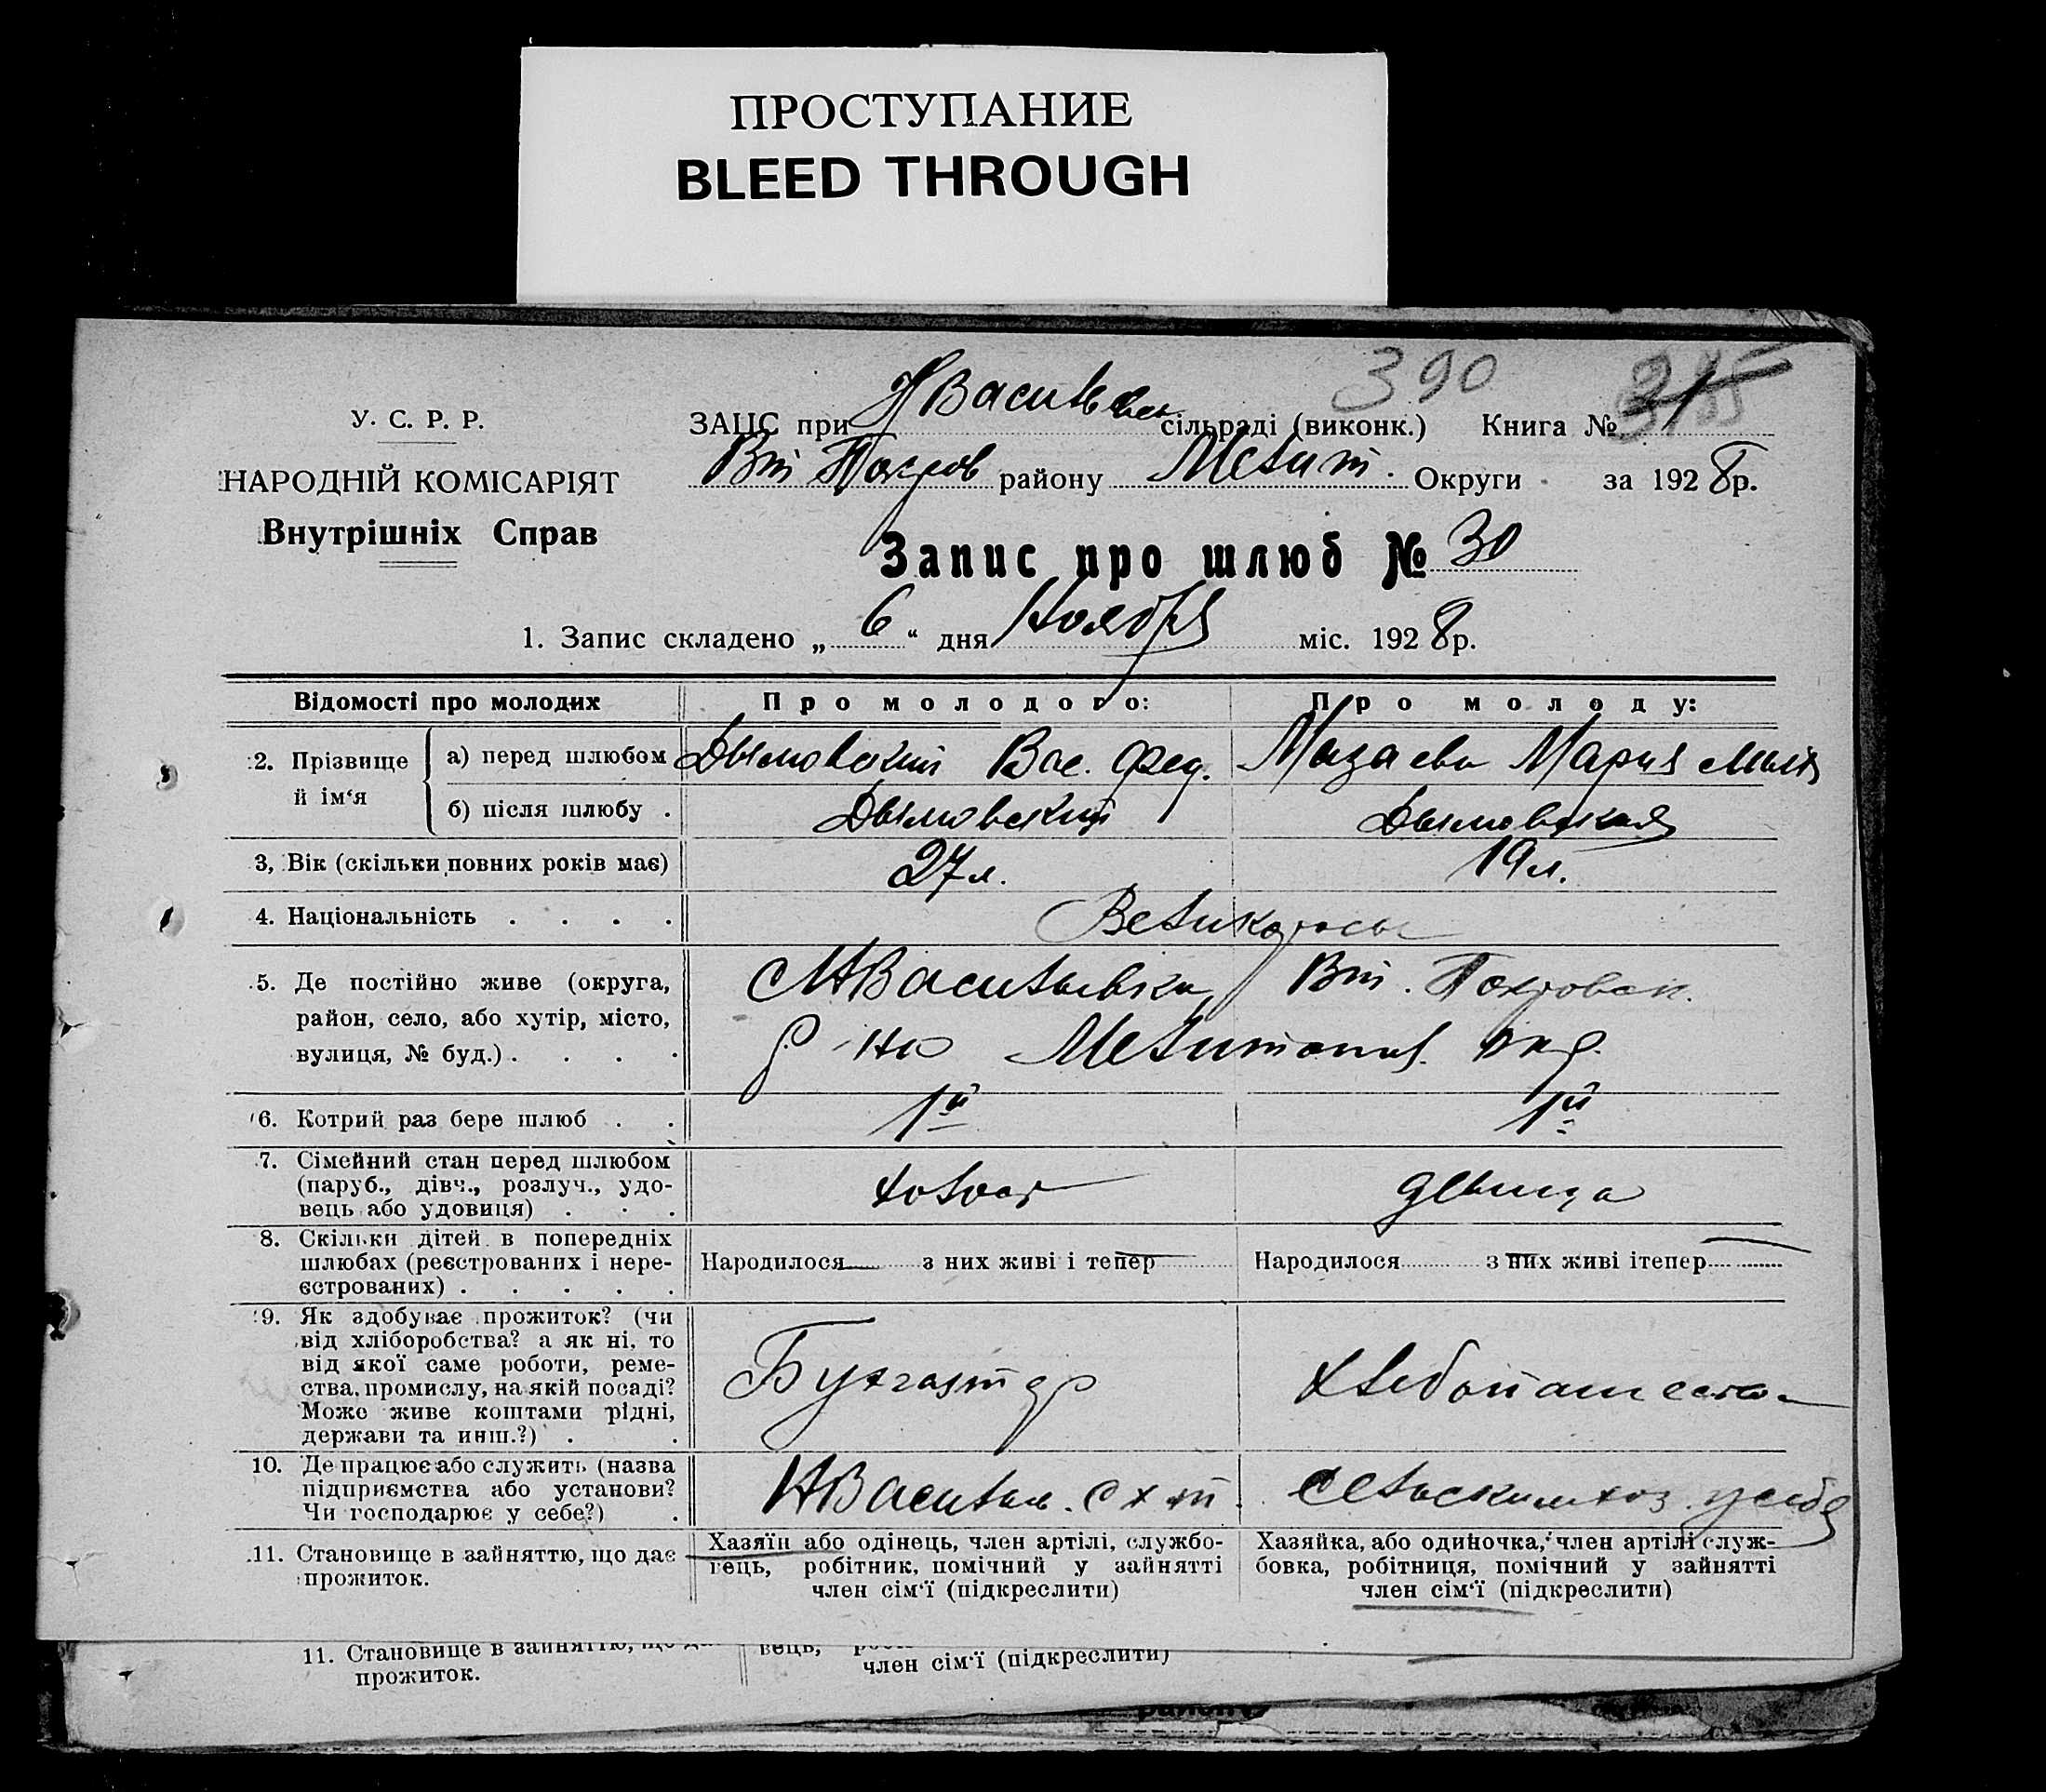 ПРОСТУПАНИЕ
BLEED THROUGH
390
У. С. Р. Р.
НАРОДНІЙ КОМІСАРІЯТ
Внутрішніх Справ
ЗАЦС при НВасильев сільраді (виконк.) Книга №
Вт Покров району Мелит. Округи за 1928р.
Запис про шлюб № 30
1. Запис складено „ 6 “ дня Ноября міс. 1928р.
Відомості про молодих Про молодого: Про молоду:
2. Прізвище й ім‘я
а) перед шлюбом Дымовский Вас. Фед. Мазаева Мария
б) після шлюбу . Дымовский Дымовская
3, Вік (скільки повних років має) 27 л. 19 л.
4. Національність . . . . Великороссы
5. Де постійно живе (округа, район, село, або хутір, місто, вулиця, № буд.) . . . .
НВасильевка, Вт. Покровск.
р-на Мелитопол. окр.
6. Котрий раз бере шлюб . . 1й 1й
7. Сімейний стан перед шлюбом (паруб., дівч., розлуч., удовець або удовиця) . . . холост девица
8. Скільки дітей в попередніх шлюбах (реєстрованих і нереєстрованих) . . . . .
Народилося з них живі і тепер Народилося з них живі ітепер
9. Як здобуває прожиток? (чи від хліборобства? а як ні, то від якої саме роботи, ремества, промислу, на якій посаді? Може живе коштами рідні, держави та инш.?) . .
Бухгалтер Хлебопашество
10. Де працює або служить (назва підприємства або установи? Чи господарює у себе?) .
НВасильев. с х т. сельским хоз. у себя
11. Становище в зайняттю, що дає прожиток.
Хазяїн або одінець, член артілі, службовець, робітник, помічний у зайнятті член сім‘ї (підкреслити)
Хазяйка, або одиночка, член артілі службовка, робітниця, помічний у зайнятті член сім‘ї (підкреслити)
11. Становище в зайняттю, що
прожиток.
вець,
член сім‘ї (підкреслити)